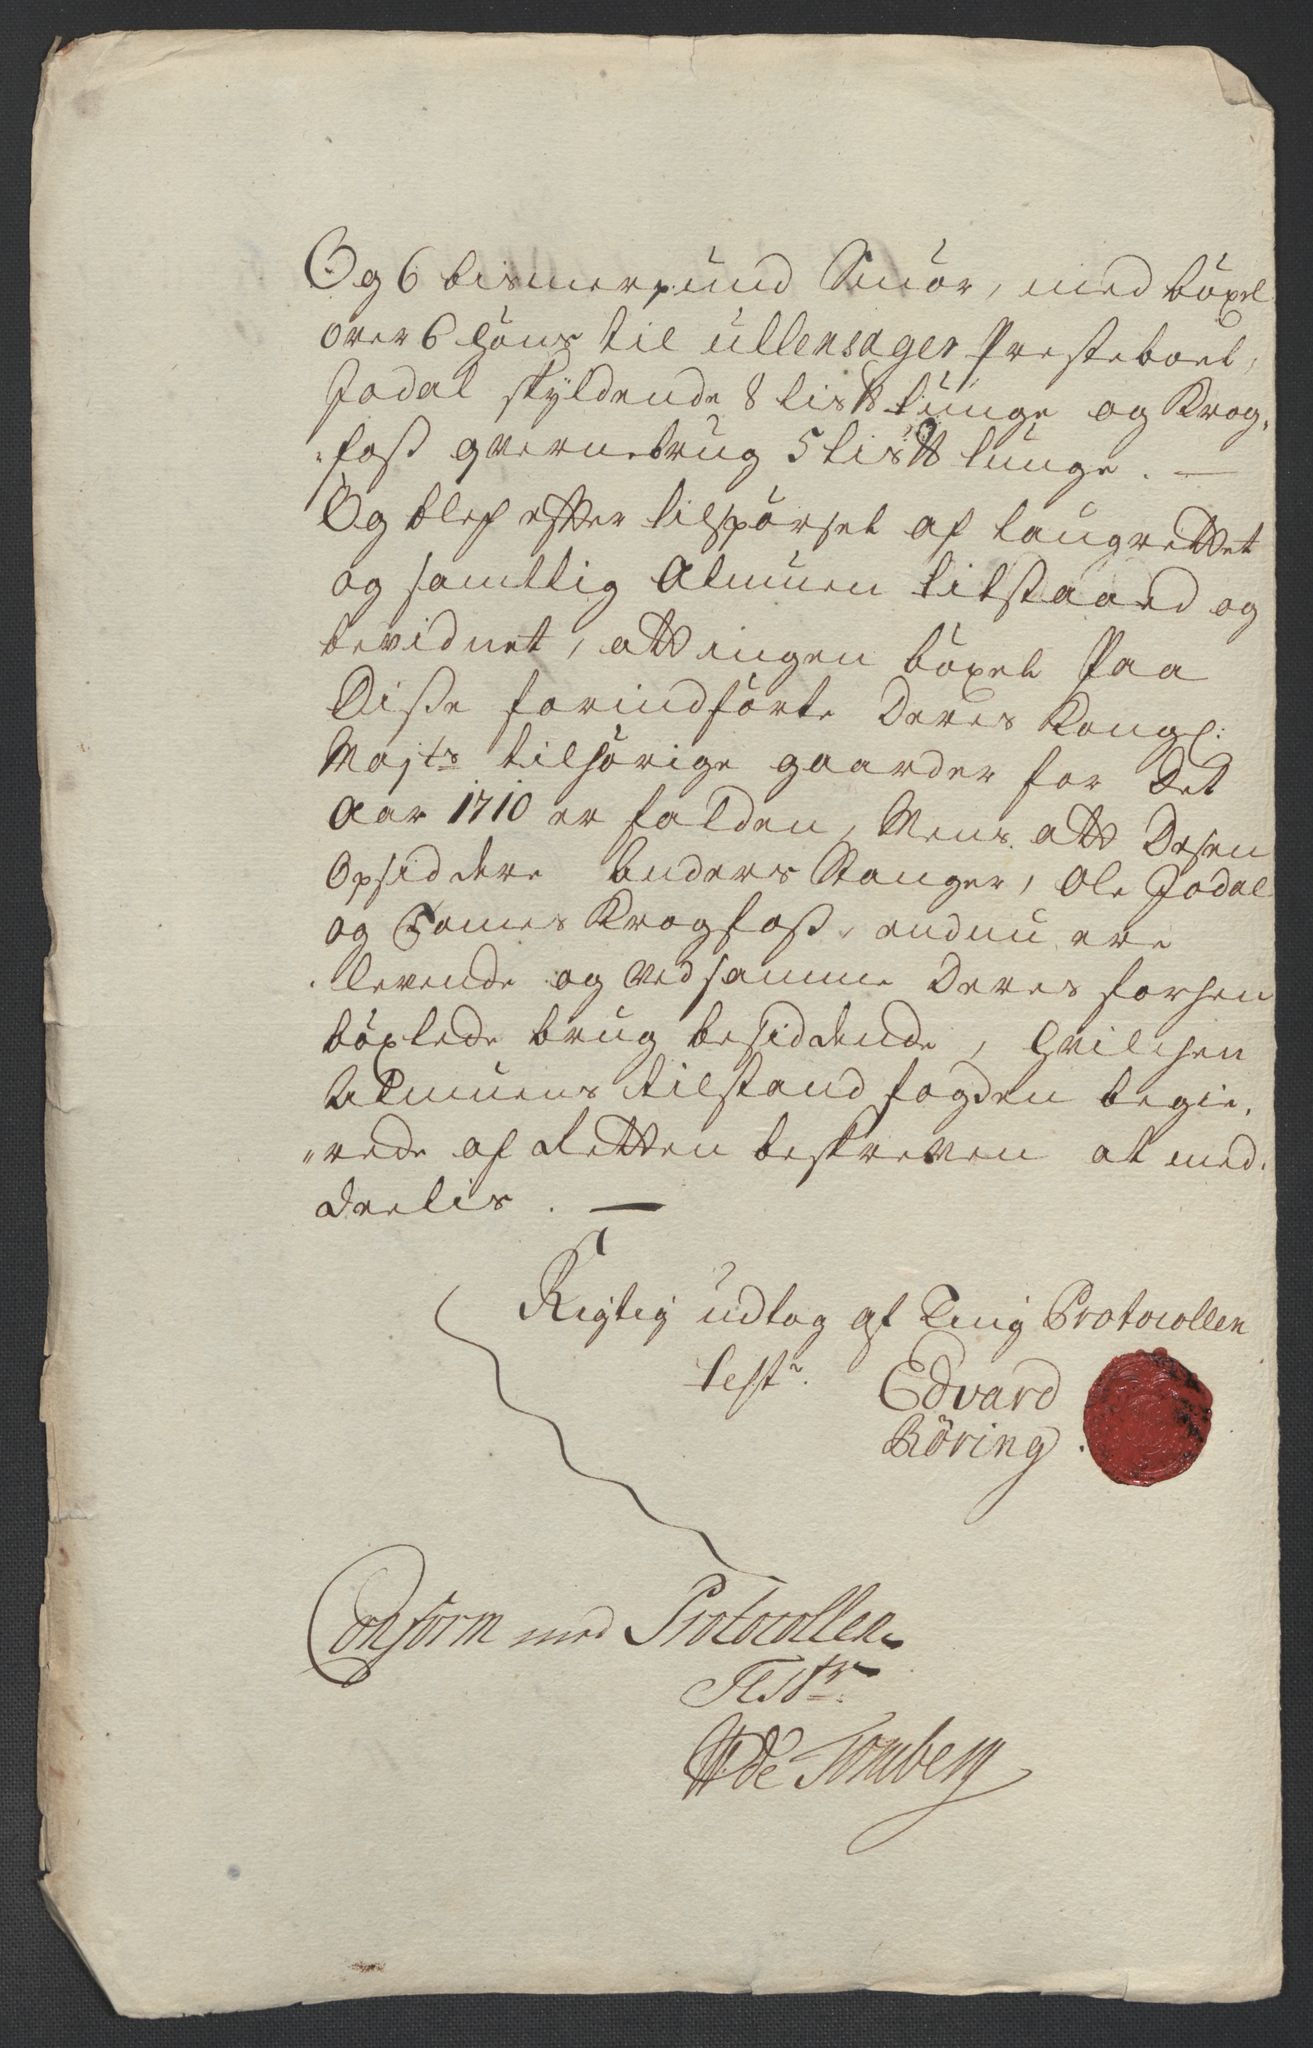 Og 6 bismerpund Smör, med böxel
over 6 Löns til ullensager Presteboel,
Jodal skyldende 8 lis℔ tunge og Krog,
„foss qvernebrug 5 lis℔ tunge. —
Og blef efter tilspörsel af Laugrettet
og samtlig Almuen tilstaaed og
bevidnet, att ingen böxel Paa
Disse forindförte Deres Kongl:
Majts tilhörige gaarder for Det
Aar 1710 er falden, Mens att Desen
Opsiddere Anders Stanger, Ole Jodal
og Tomes Krogfoss, endnu ere
levende og ved samme Deres forhen
böxlede brug besiddende, hvilchen
Almuens tilstand fogden begie,
„rede af Retten beskreven at med,
deelis. —
Rigtig udtog af Ting Protocollen
Test. Edvard
Röring.
Conform med Protocollen
Test:
de Tonsberg